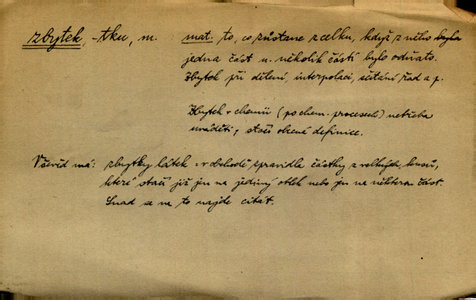 zbytek, -tku, m. mat. to, co zůstane z celku, když z něho byla
jedna část n. několik částí bylo odňato.
Zbytek při dělení, interpolaci, sčítání řad a p.
Zbytek v chemii (po chem. procesech) netřeba
uváděti, stačí obecná definice.
Vševíd má: zbytky látek v obchodě, zpravidla částky z velkých kusů,
které stačí již jen na jediný oblek nebo jen na některou část.
Snad se na to najde citát.